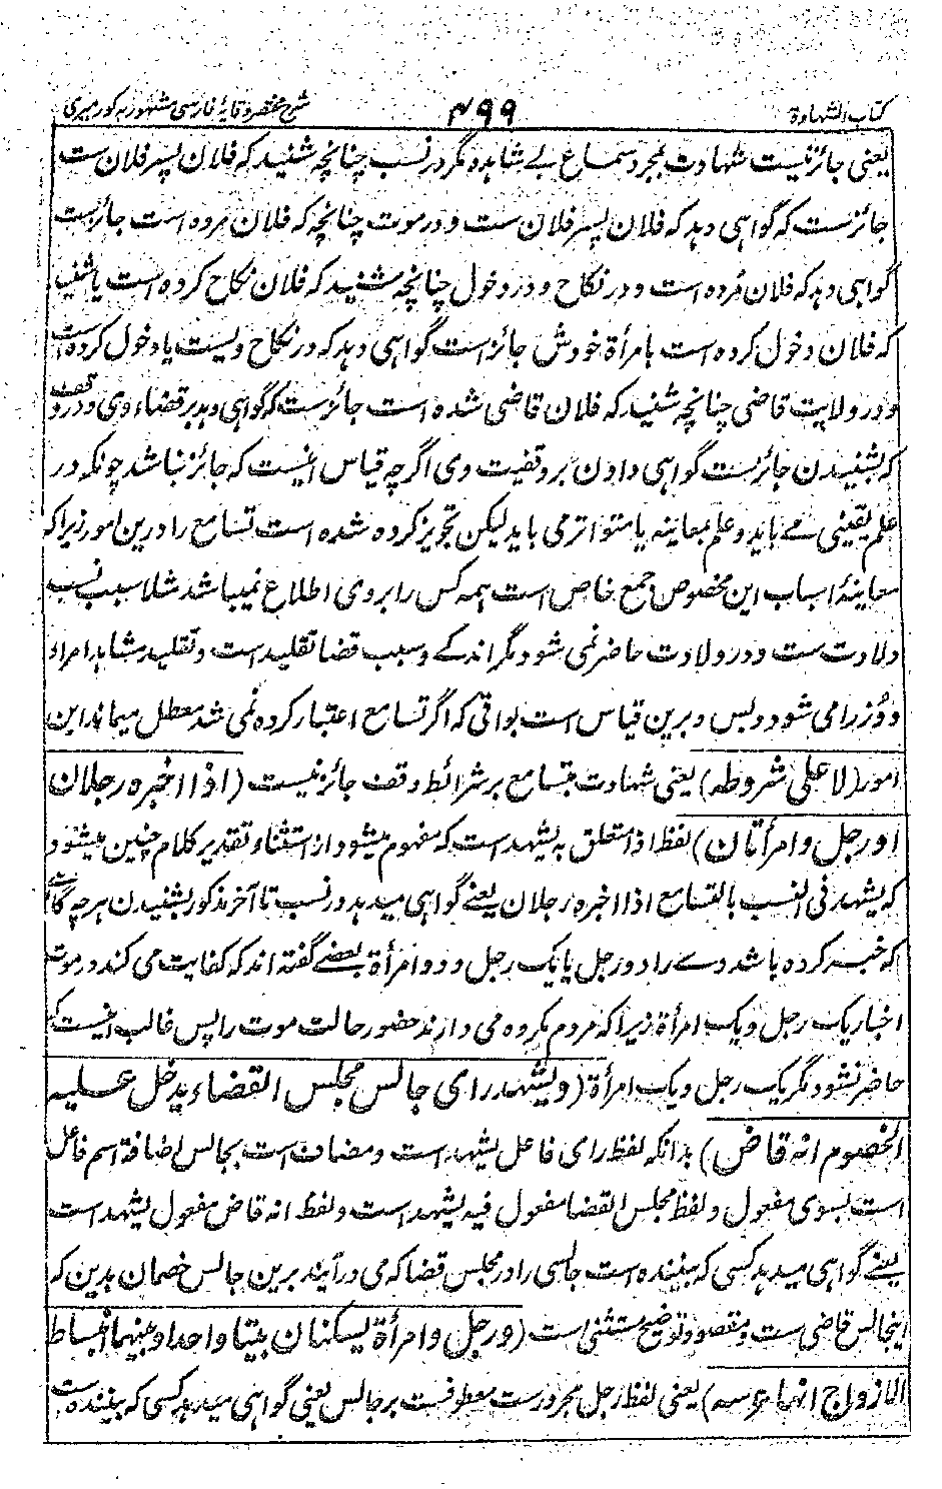 کتاب الشهادة ۴۹۹ شرح مختصر وقایهٔ فارسی مشهور به کور میری
یعنی جائز نیست شهادت بمجرد سماع بے مشاهده مگر در نسب چنانچه شنید که فلان پسر فلان ست
جائز ست که گواهی دهد که فلان پسر فلان ست و در موت چنانچه که فلان مرده است جائز ست
گواهی دهد که فلان مُرده است و در نکاح و در دخول چنانچه شنید که فلان نکاح کرده است یا شنید
که فلان دخول کرده است بامرأة خودش جائز است گواهی دهد که در نکاح ویست یا دخول کرده است
و در ولایت قاضی چنانچه شنید که فلان قاضی شده است جائز ست که گواهی دهد بر قضاء وی و در وقف
که بشنیدن جائز ست گواهی دادن بر وقفیت وی اگر چه قیاس اینست که جائز نباشد چونکه در
علم یقینی مے باید و علم بمعاینه یا متواتر می باید لیکن تجویز کرده شده است تسامع را درین امور زیرا که
معاینهٔ اسباب این مخصوص جمع خاص است همه کس را بر وی اطلاع نمیباشد مثلا سبب نسب
ولادت ست و در ولادت حاضر نمی شود مگر اندکے و سبب قضا تقلید است و تقلید مشاهد امراء
و وُزرا می شود و بس و برین قیاس است بواقی که اگر تسامع اعتبار کرده نمی شد معطل میماند این
امور (لا علی شروطه) یعنی شهادت بتسامع بر شرائط وقف جائز نیست (اذا اخبره رجلان
او رجل وامرأتان) لفظ اذا متعلق به یشهد است که مفهوم میشود از استثناء و تقدیر کلام چنین میشود
که یشهد فی النسب بالتسامع اذا اخبره رجلان یعنے گواهی میدهد در نسب تا آخر مذکور بشنیدن هر چه گاهے
که خبر کرده باشد وے را دو رجل یا یک رجل و دو امرأة بعضے گفته اند که کفایت می کند در موت
اخبار یک رجل و یک امرأة زیرا که مردم مکروه می دارند حضور حالت موت را پس غالب اینست که
حاضر نشود مگر یک رجل و یک امرأة (ویشهد رای جالس مجلس القضاء یدخل علیه
الخصوم انه قاض) بدانکه لفظ رای فاعل یشهد است و مضاف است بجالس اضافة اسم فاعل
است بسوی مفعول و لفظ مجلس القضا مفعول فیه یشهد است و لفظ انه قاض مفعول یشهد است
یعنے گواهی میدهد کسی که بیننده است جالسی را در مجلس قضا که می در آیند برین جالس خصمان بدین که
اینجالس قاضی ست و مقصود توضیح مستثنی است (ورجل وامرأة یسکنان بیتا واحدا وبینهما انبساط
الازواج انها عرسه) یعنی لفظ رجل مجرورست معطوفست بر جالس یعنی گواهی میدهد کسی که بیننده ست